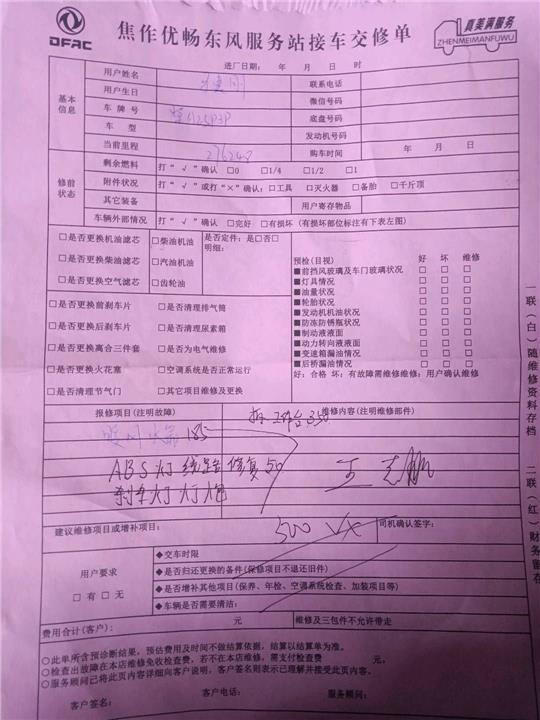 DFAC
焦作优畅东风服务站接车交修单
真美满服务
ZHENMEIMANFUWU
进厂日期： 年 月 日 时
基本信息
用户姓名
联系电话
用户生日
微信号码
车牌号
底盘号码
车 型
发动机号码
当前里程
276248
购车时间
年 月 日
修前状态
剩余燃料
打“√”确认 □0 □1/4 □1/2 □1
附件状况
打“√”或打“×”确认：□工具 □灭火器 □备胎 □千斤顶
其它装备
用户寄存物品
车辆外部情况
打“√”确认 □完好 □有损坏（有损坏部位标注有下表左图）
□是否更换机油滤芯
□柴油机油
是否定件：是□否□
明细：
□是否更换柴油滤芯
□汽油机油
□是否更换空气滤芯
□齿轮油
预检（目视） 好 坏 维修
■前挡风玻璃及车门玻璃状况 □ □ □
■灯具情况 □ □ □
■油量状况 □ □ □
■轮胎状况 □ □ □
■发动机机油状况 □ □ □
■防冻防锈瓶状况 □ □ □
■制动液液面 □ □ □
■动力转向液液面 □ □ □
■变速箱漏油情况 □ □ □
■后桥漏油情况 □ □ □
好：合格 坏：有故障需维修维修：用户确认维修
□是否更换前刹车片
□是否清理排气筒
□是否更换后刹车片
□是否清理尿素箱
□是否更换离合三件套
□是否为电气维修
□是否更换火花塞
□空调系统是否正常运行
□是否清理节气门
□其它项目维修及更换
报修项目（注明故障）
维修内容（注明维修部件）
工作台350
185
ABS灯线路修复50
刹车灯灯泡
王志鹏
建议维修项目或增补项目：
500 VX
司机确认签字：
用户要求
□有 □无
◆交车时限
◆是否归还更换的备件（保修项目不退还旧件）
◆是否增补其他项目（保养、年检、空调系统检查、加装项目等）
◆车辆是否需要清洁：
费用合计（客户）： 元
维修及三包件不允许带走
○此单所含预诊断结果，预估费用及时间不做结算依据，结算以结算单为准。
○检查出故障在本店维修免收检查费，若不在本店维修，需支付检查费 元。
○服务顾问已将此页内容详细向客户说明，客户签名则表示已理解并接受此页内容。
客户签名： 客户电话： 服务顾问：
一联（白）随维修资料存档 二联（红）财务留存